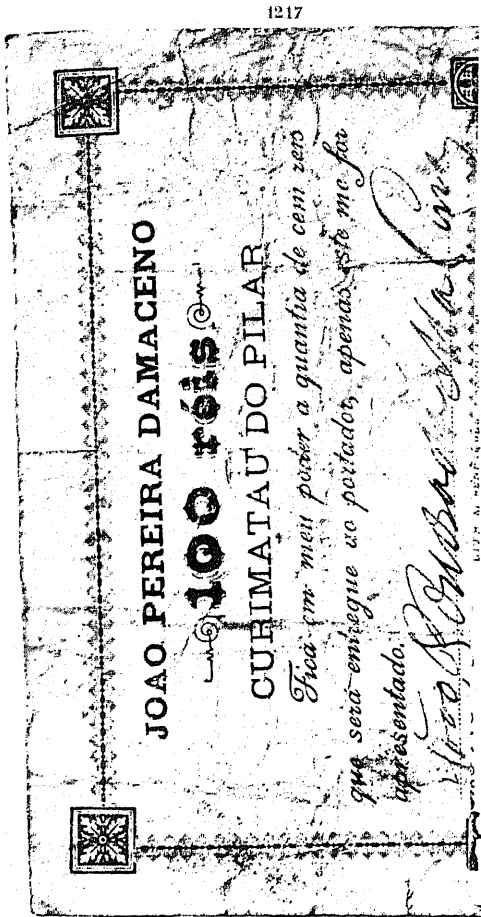 1217
JOAO PEREIRA DAMACENO
100 réis
CURIMATAU DO PILAR
Fica em meu poder a quantia de cem reis
que será entregue ao portador, apenas este me for
apresentado.